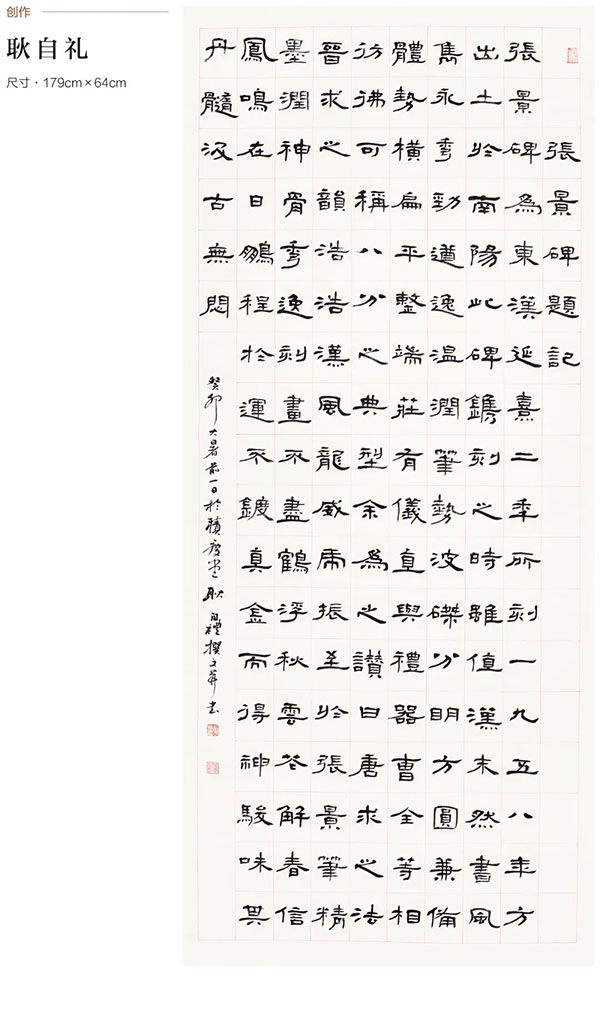 创作
耿自礼
尺寸·179cm×64cm
張景碑題記
張景碑為東漢延熹二年所刻一九五八年方
出土於南陽此碑鐫刻之時雖值漢末然書風
雋永秀勁遒逸溫潤筆勢波磔分明方圓兼備
體勢橫扁平整端莊有儀直與禮器曹全等相
彷彿可稱八分之典型余為之讚曰唐求之法
晉求之韻浩浩漢風龍威虎振至於張景筆精
墨潤神骨秀逸刻畫不盡鶴浮秋雲花解春信
鳳鳴在日鵬程於運不鍍真金而得神駿味其
丹髓汲古無悶
癸卯大暑前一日於堂耿自禮撰文并書